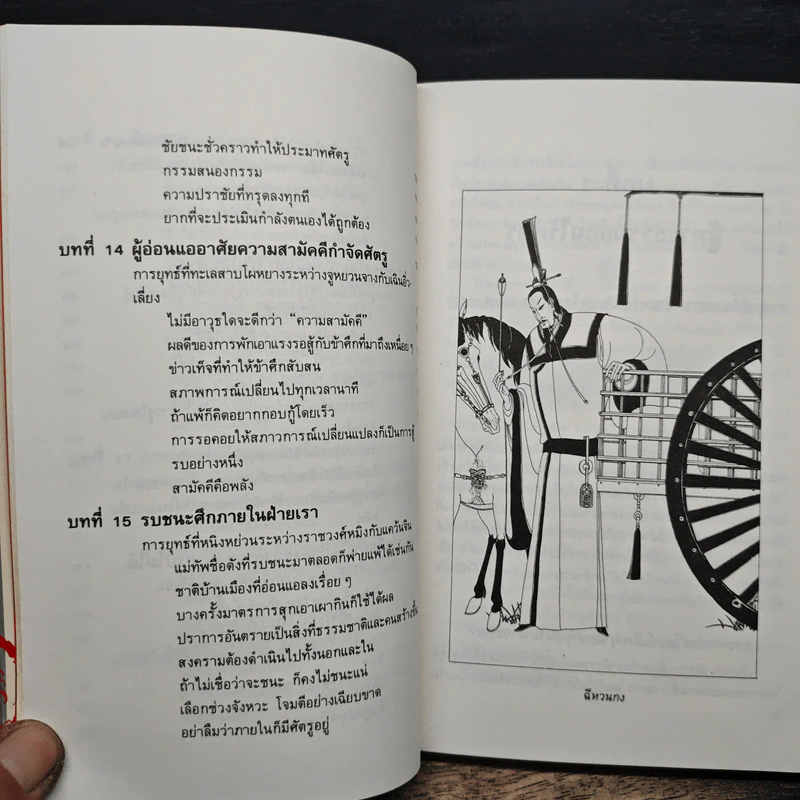 ชัยชนะชั่วคราวทำให้ประมาทศัตรู
กรรมสนองกรรม
ความปราชัยที่ทรุดลงทุกที
ยากที่จะประเมินกำลังตนเองได้ถูกต้อง
บทที่ 14 ผู้อ่อนแออาศัยความสามัคคีกำจัดศัตรู
การยุทธ์ที่ทะเลสาบโผหยางระหว่างจูหยวนจางกับเฉินอิ่ว-
เลี่ยง
ไม่มีอาวุธใดจะดีกว่า “ความสามัคคี”
ผลดีของการพักเอาแรงรอสู้กับข้าศึกที่มาถึงเหนื่อย ๆ
ข่าวเท็จที่ทำให้ข้าศึกสับสน
สภาพการณ์เปลี่ยนไปทุกเวลานาที
ถ้าแพ้ก็คิดอยากกอบกู้โดยเร็ว
การรอคอยให้สภาวการณ์เปลี่ยนแปลงก็เป็นการสู้
รบอย่างหนึ่ง
สามัคคีคือพลัง
บทที่ 15 รบชนะศึกภายในฝ่ายเรา
การยุทธ์ที่หนิงหย่วนระหว่างราชวงศ์หมิงกับแคว้นจิน
แม่ทัพชื่อดังที่รบชนะมาตลอดก็พ่ายแพ้ได้เช่นกัน
ชาติบ้านเมืองที่อ่อนแอลงเรื่อย ๆ
บางครั้งมาตรการสุกเอาเผากินก็ใช้ได้ผล
ปราการอันตรายเป็นสิ่งที่ธรรมชาติและคนสร้างขึ้น
สงครามต้องดำเนินไปทั้งนอกและใน
ถ้าไม่เชื่อว่าจะชนะ ก็คงไม่ชนะแน่
เลือกช่วงจังหวะ โจมตีอย่างเฉียบขาด
อย่าลืมว่าภายในก็มีศัตรูอยู่
ฉีหวนกง